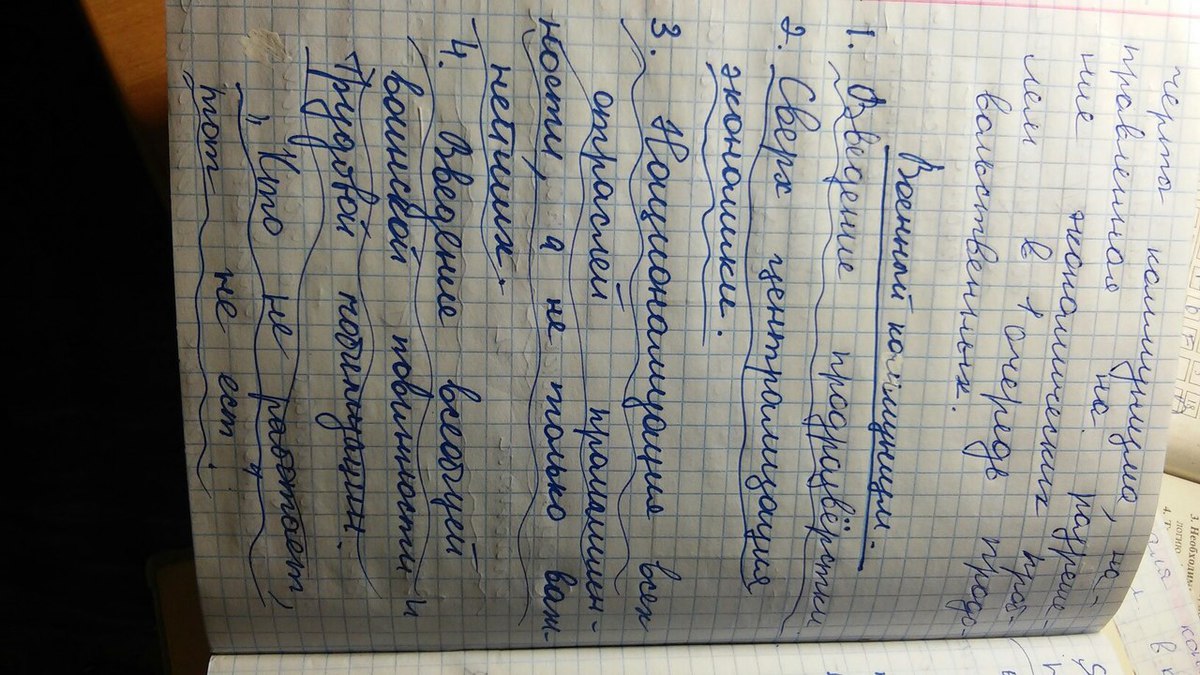 черта коммунизма, на-
правленная на разреше-
ние экономических проб-
лем в 1 очередь продо-
вольственных.
Военный коммунизм.
1. Введение продразвёрстки
2. Сверх централизация
экономики.
3. Национализация всех
отраслей промышлен-
ности, а не только важ-
нейших.
4. Введение всеобщей
воинской повинности и
Трудовой мобилизации.
"Кто не работает,
тот не ест".
3. Необходим
4. Т
логию